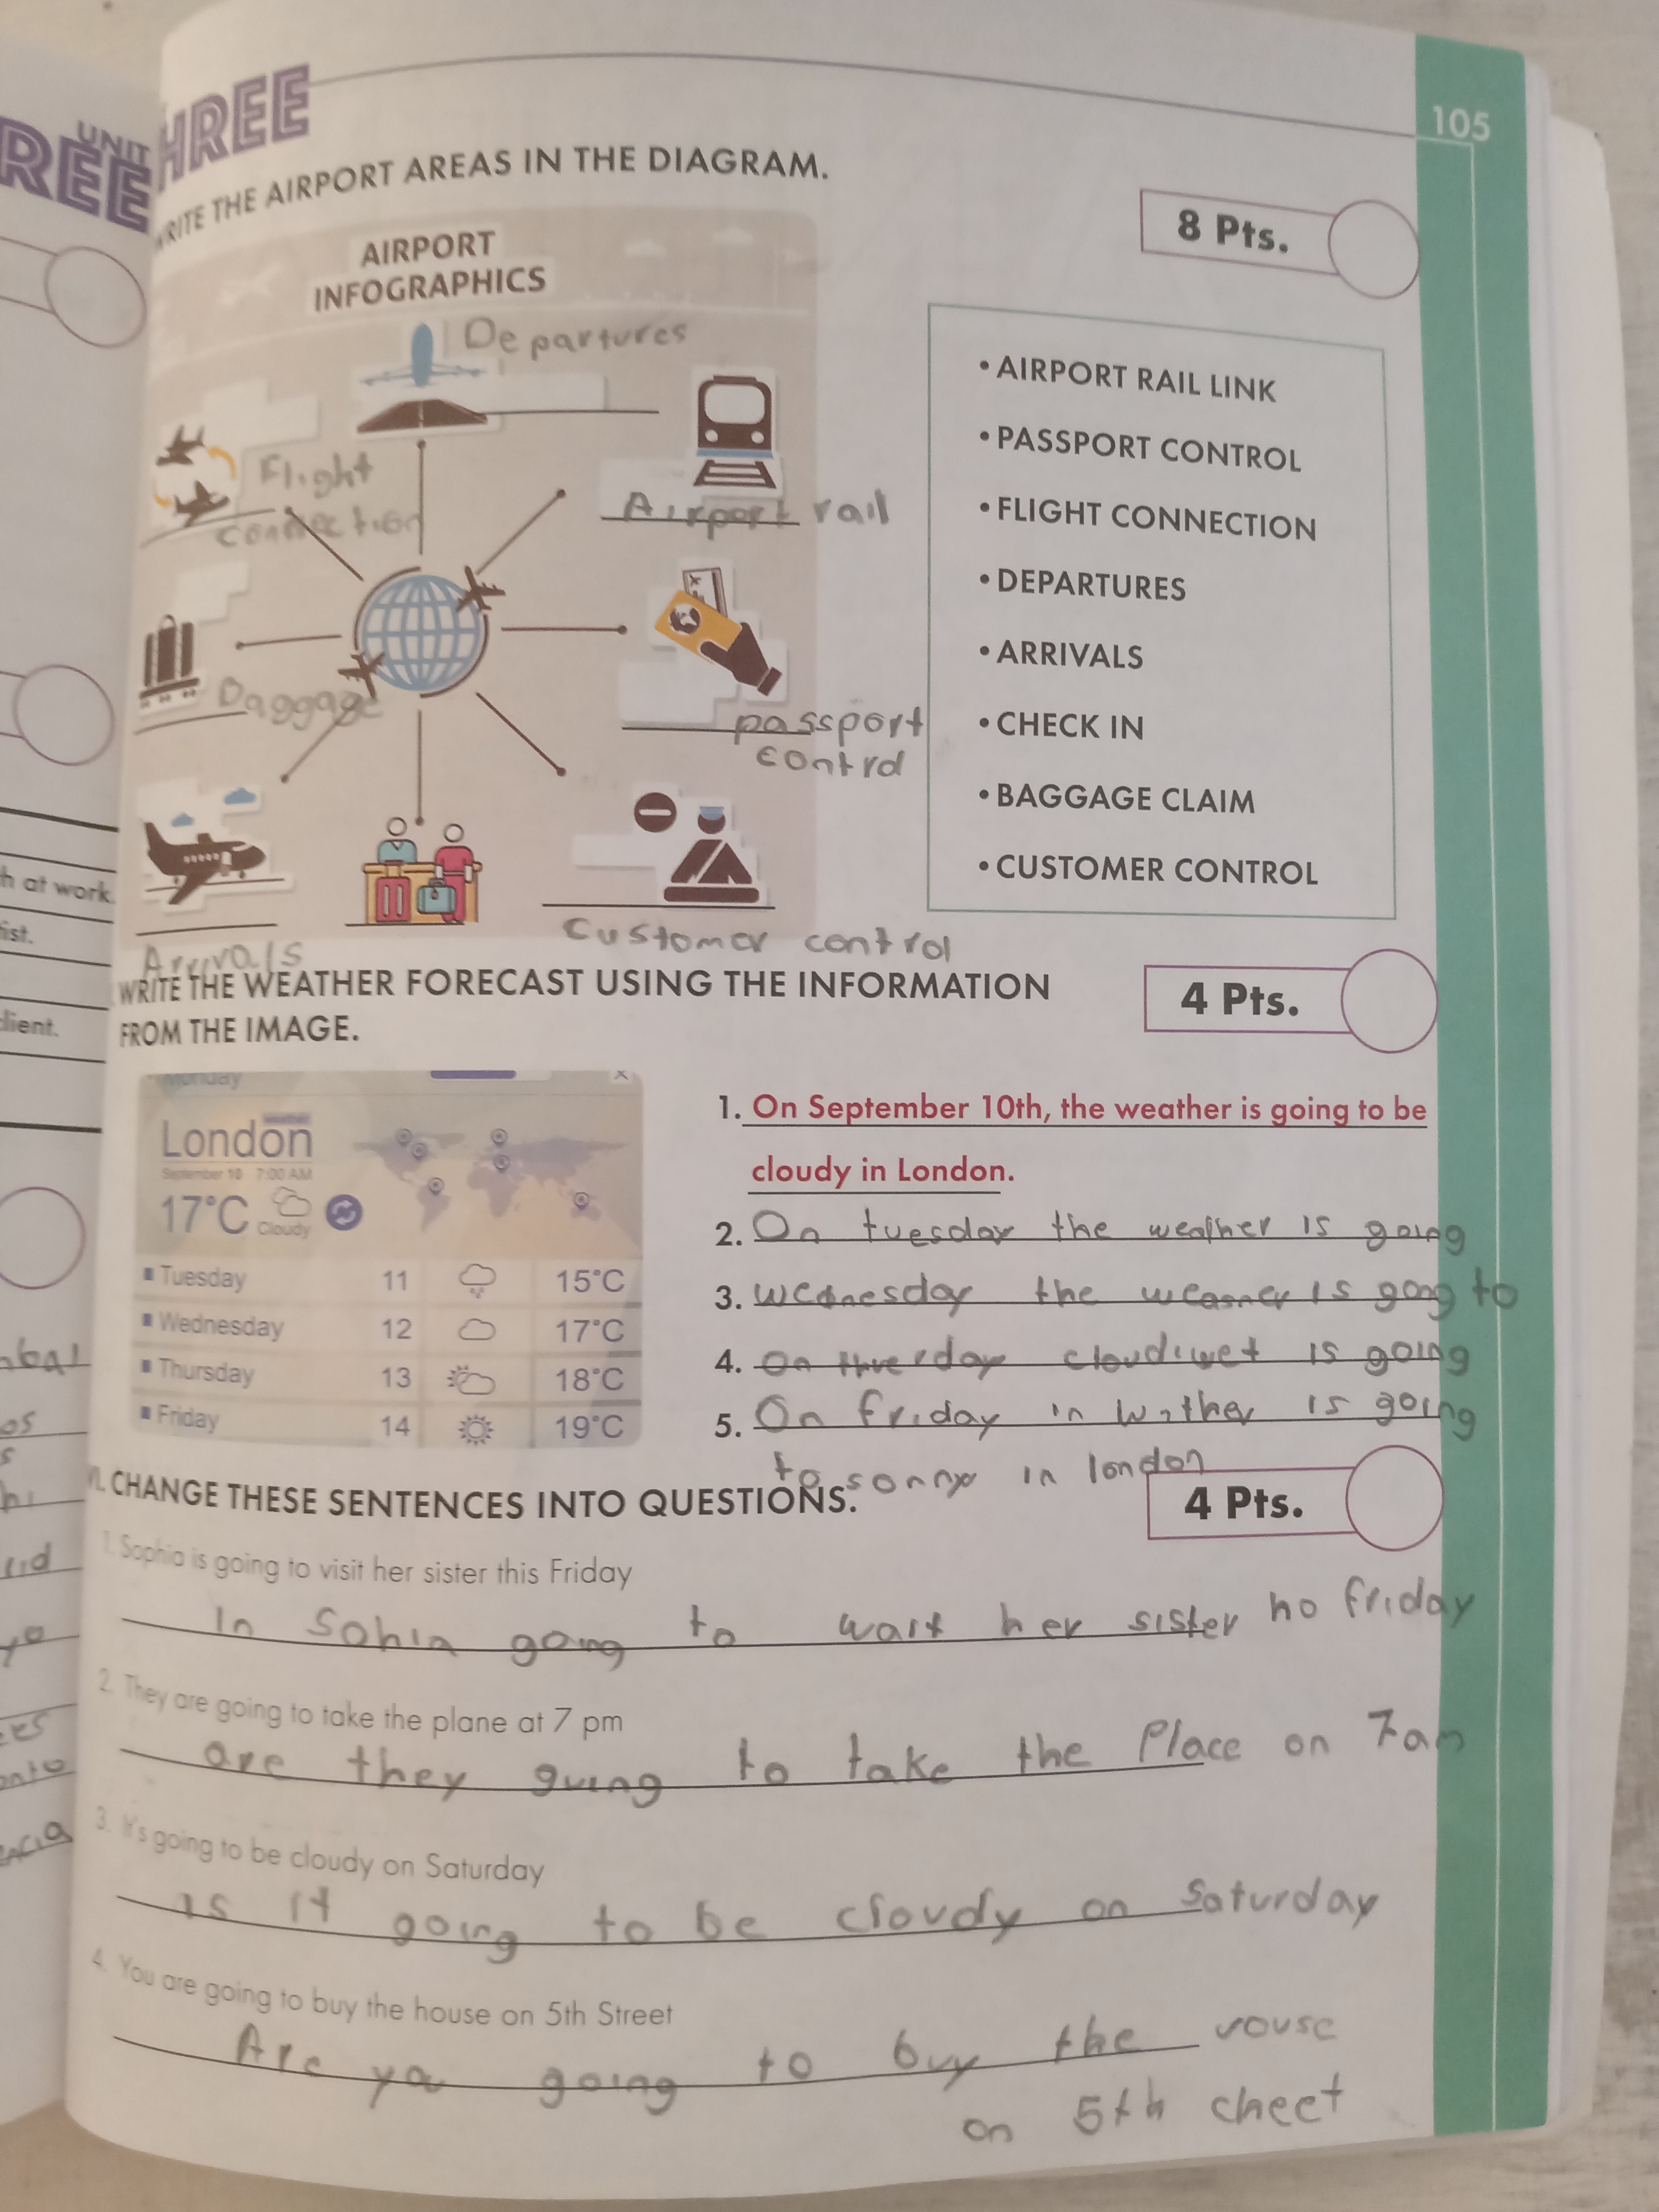 UNIT
REE
HREE
105
WRITE THE AIRPORT AREAS IN THE DIAGRAM.
8 Pts.
AIRPORT
INFOGRAPHICS
Departures
Flight
connection
Airport rail
Daggage
passport
control
Arrivals
Customer control
• AIRPORT RAIL LINK
• PASSPORT CONTROL
• FLIGHT CONNECTION
• DEPARTURES
• ARRIVALS
• CHECK IN
• BAGGAGE CLAIM
• CUSTOMER CONTROL
h at work.
ist.
client.
WRITE THE WEATHER FORECAST USING THE INFORMATION
FROM THE IMAGE.
4 Pts.
Monday
London
September 10 7:00 AM
17°C Cloudy
Tuesday 11 15°C
Wednesday 12 17°C
Thursday 13 18°C
Friday 14 19°C
1. On September 10th, the weather is going to be
cloudy in London.
2. On tuesday the weather is going
3. wednesday the is gong to
4. On is going
5. On friday in is going
to sonny in london
VI. CHANGE THESE SENTENCES INTO QUESTIONS.
4 Pts.
1. Sophia is going to visit her sister this Friday
In Sohia going to wait her sister no friday
2. They are going to take the plane at 7 pm
are they guing to take the Place on 7am
3. It's going to be cloudy on Saturday
is it going to be cloudy on Saturday
4. You are going to buy the house on 5th Street
Are ya going to buy the vouse
on 5th cheet